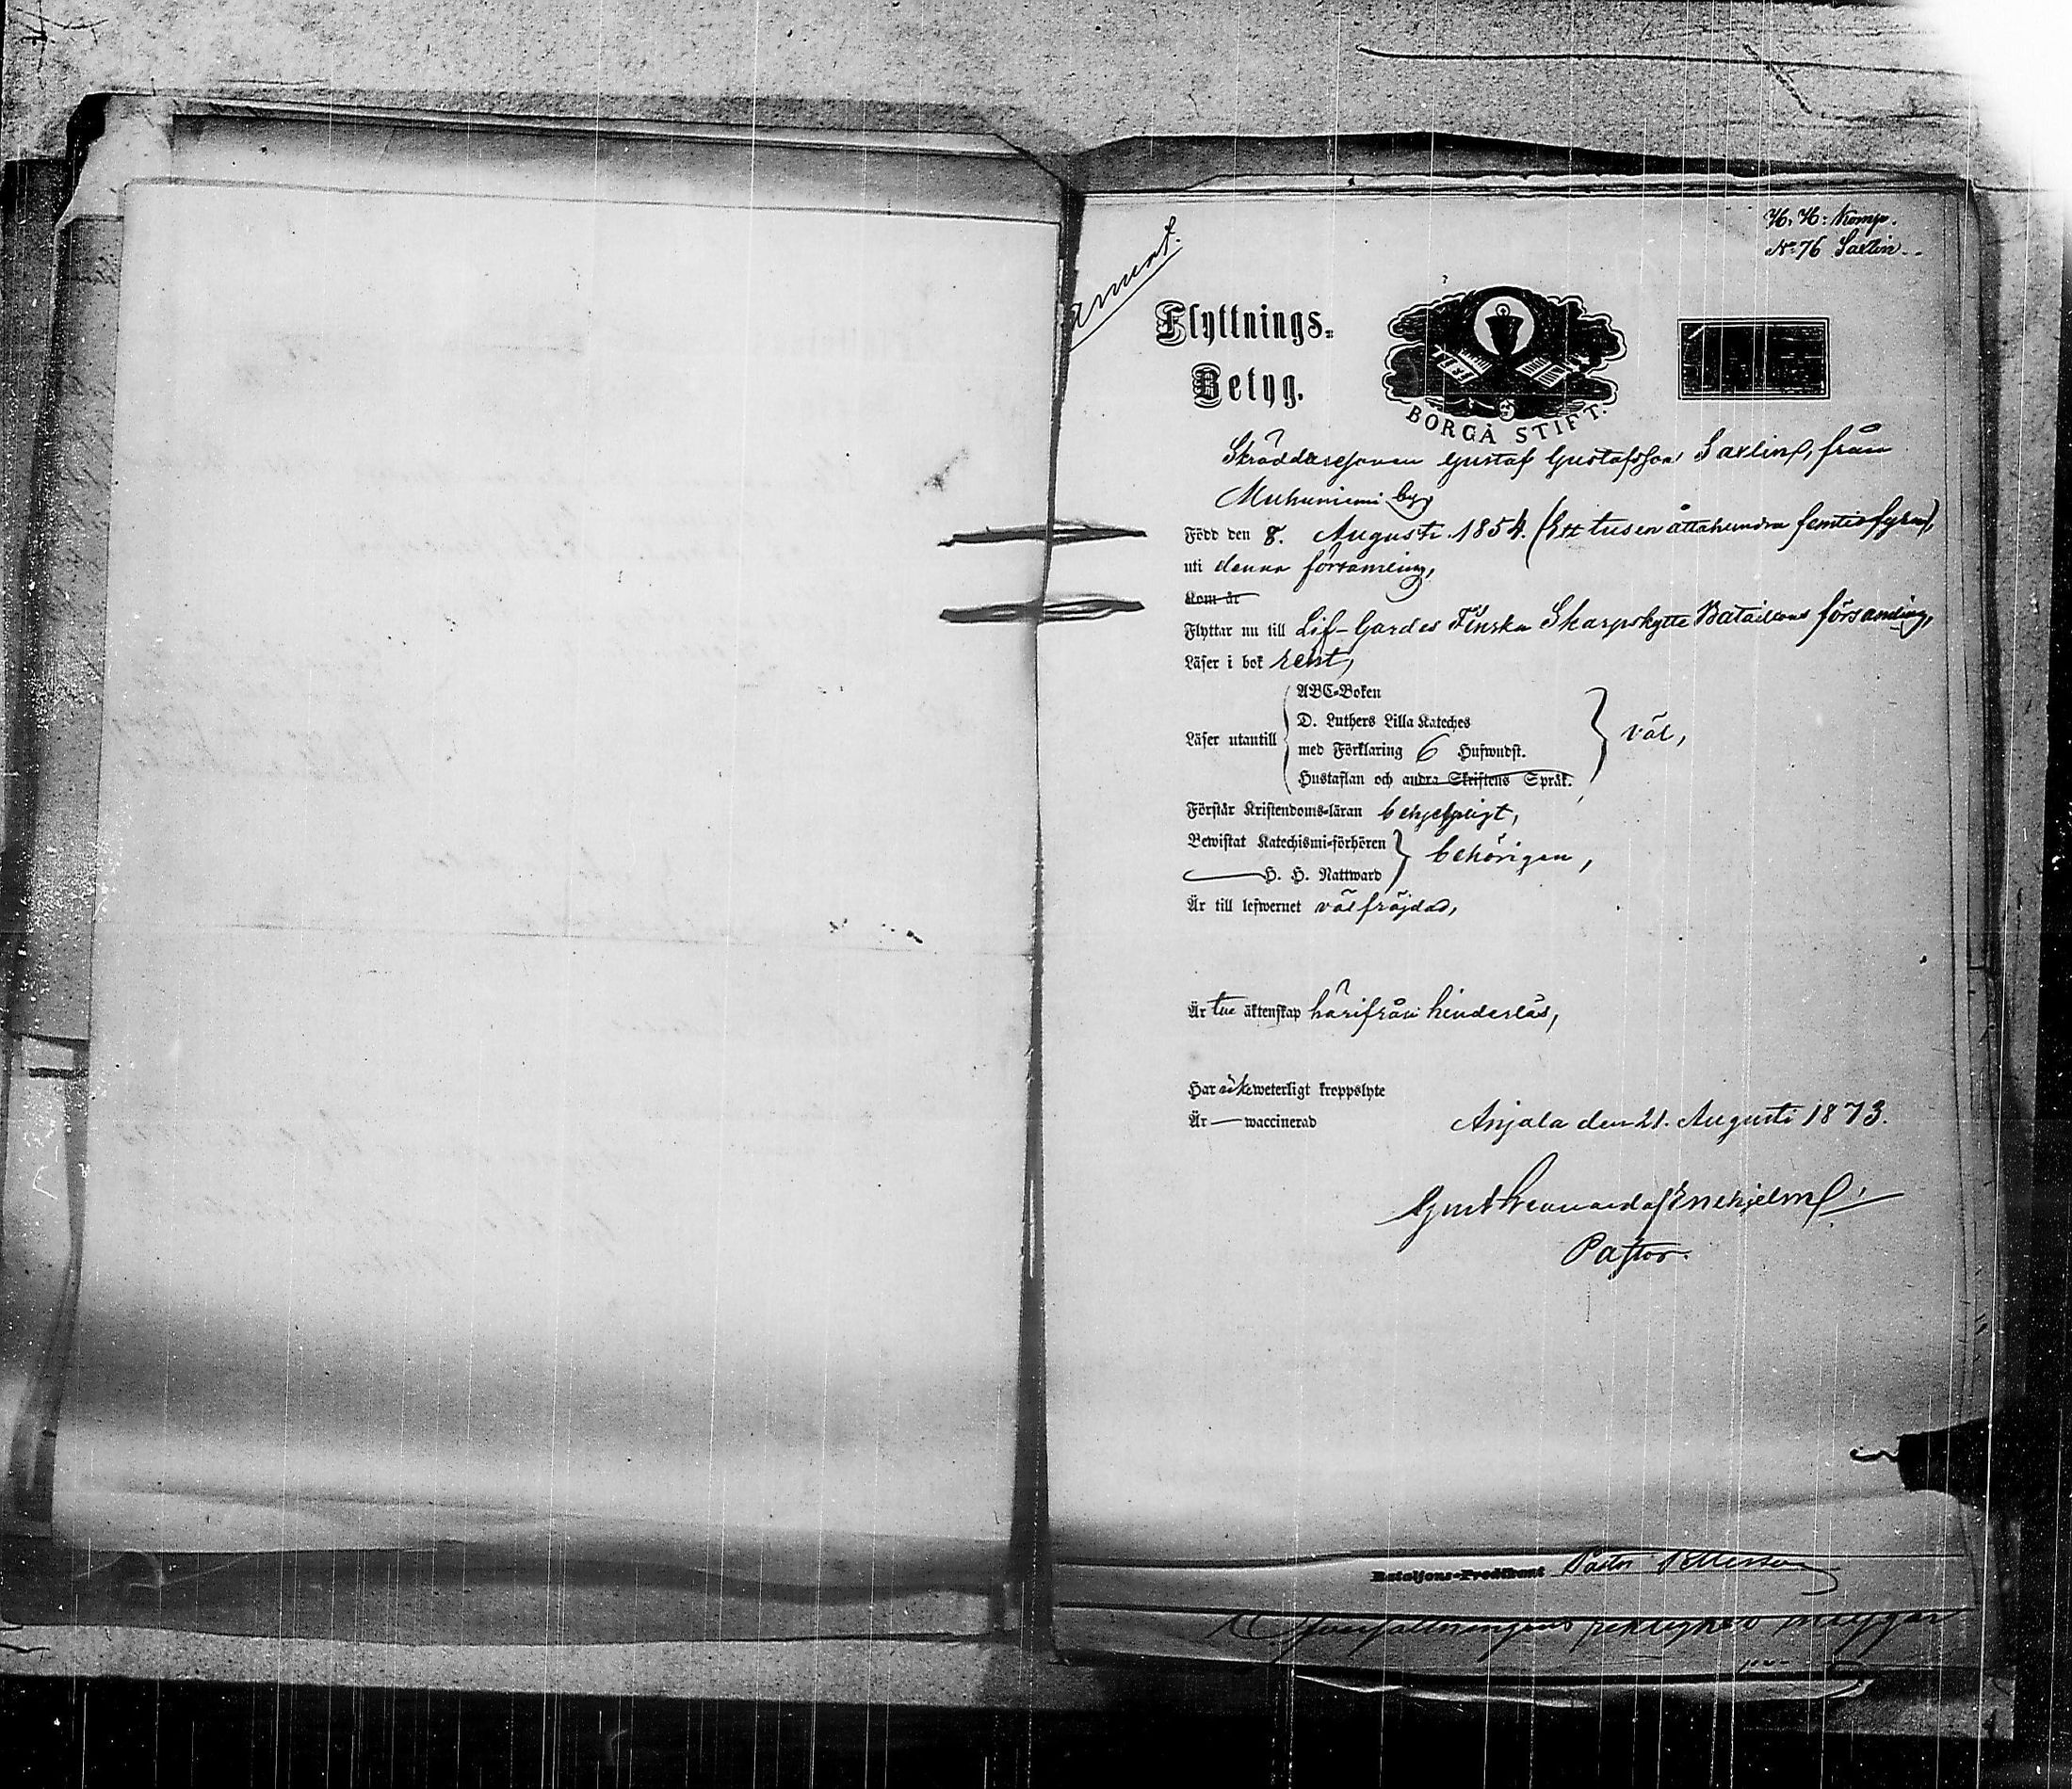 H. H: Komp.
N:o 76 Saxlin.
Flyttnings-
Betyg.
BORGÅ STIFT.
Skräddaresonen Gustaf Gustafsson Saxlin, från
Muhuniemi by,
Född den 8. Augusti 1854. (Ett tusen åttahundra femtiofyra),
uti denna församling,
Kom år
Flyttar nu till Lif-Gardes Finska Skarpskytte Bataillons församling,
Läser i bok rent,
ABC-Boken
D. Luthers Lilla Kateches
Läser utantill
med Förklaring 6 Hufwudst.
väl,
Hustaflan och andra Skriftens Språk.
Förstår Kristendoms-läran behjelpligt,
Bewistat Katechismi-förhören
behörigen,
H. H. Nattward
Är till lefwernet välfräjdad,
Är till äktenskap härifrån hinderlös,
Har icke weterligt kroppslyte
Är — waccinerad
Anjala den 21. Augusti 1873.
Gust. Leonard af Enehjelm
Pastor.
Bataljons-Predikant Pastor